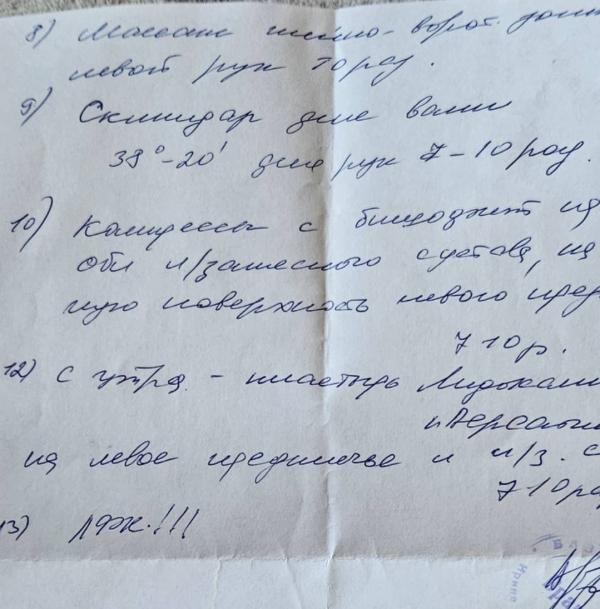 8) Массаж шейно-ворот.
левой рук 10 раз.
9) Скипидар для ванн
38°-20' для рук 7-10 раз.
10) Компрессы с бишофит на
обл л/запястного сустава, на
ную поверхность левого пред
7 10 р.
12) С утра - пластырь Лидокаин
Версатис
на левое предплечье и л/з. с
7 10 раз
13) ЛФК!!!